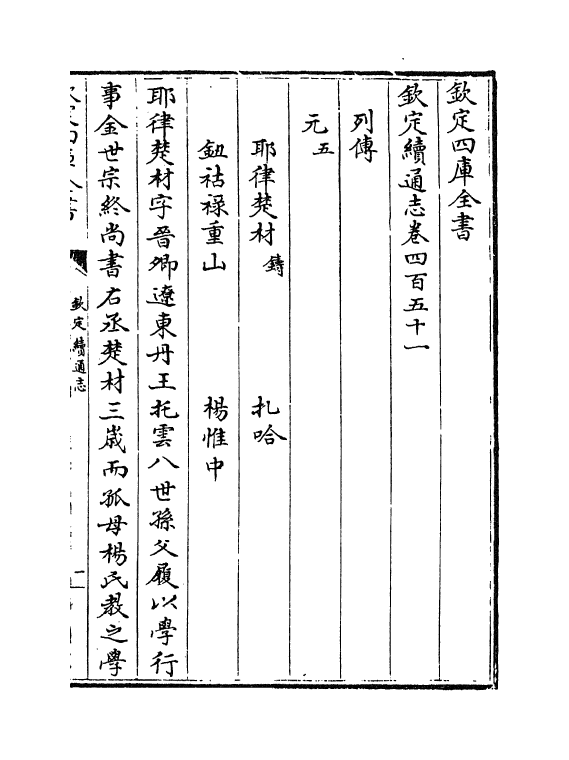 欽定四庫全書
欽定續通志卷四百五十一
列傳
元五
耶律楚材鑄 扎哈
鈕祜祿重山 楊惟中
耶律楚材字晉卿遼東丹王托雲八世孫父履以學行
事金世宗終尚書右丞楚材三歲而孤母楊氏教之學
欽定續通志